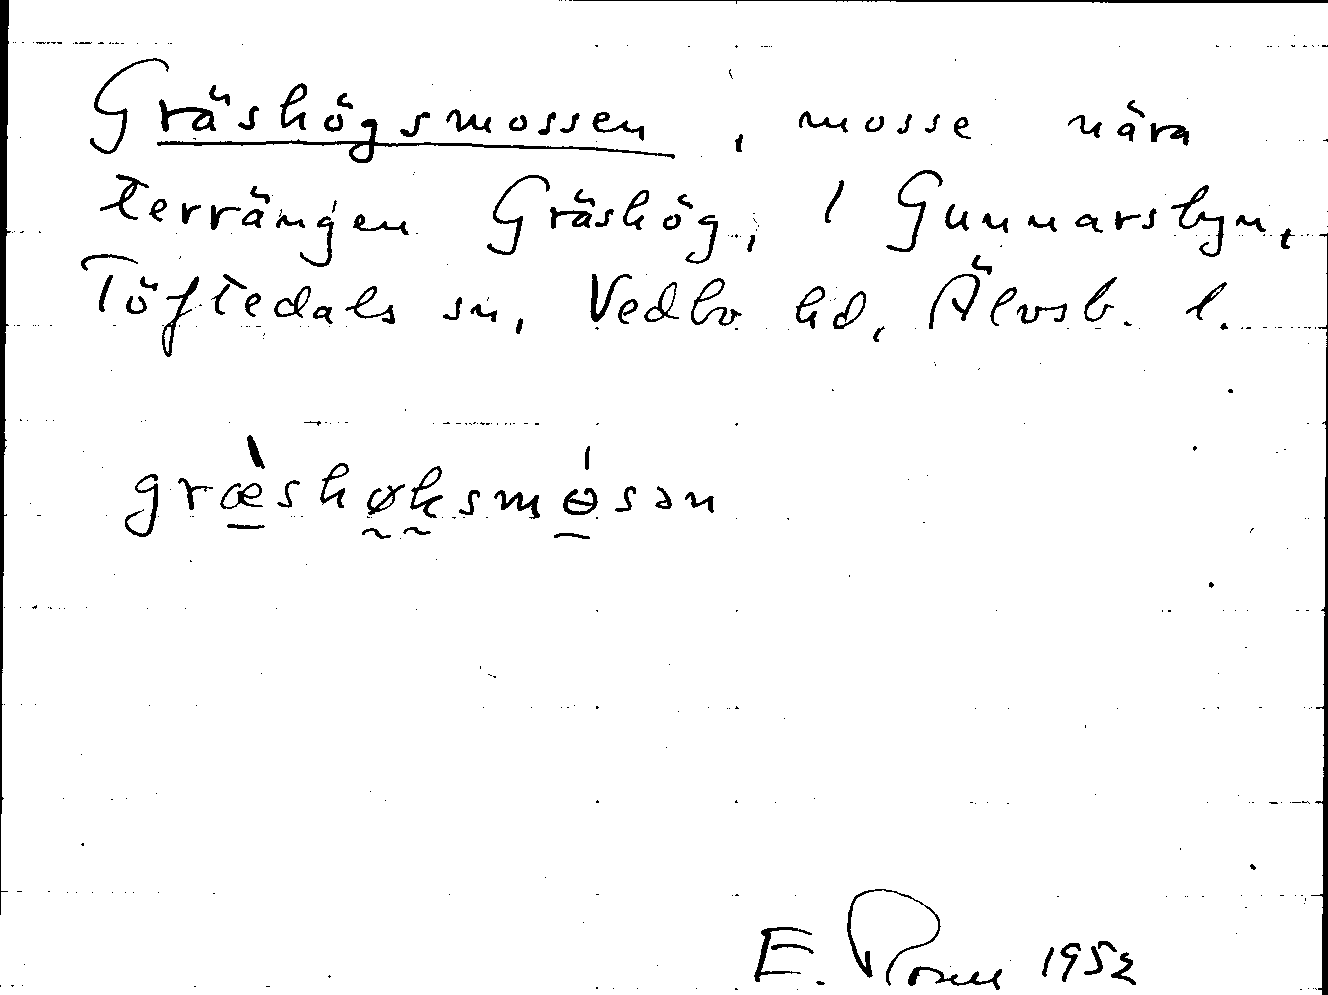 Gräshögsmossen, mosse nära
terrängen Gräshög, 1 Gunnarsbyn,
Töftedals sn, Vedbo hd, Älvsb. l.
græ̀shøksmɵ́sən
E. 1952